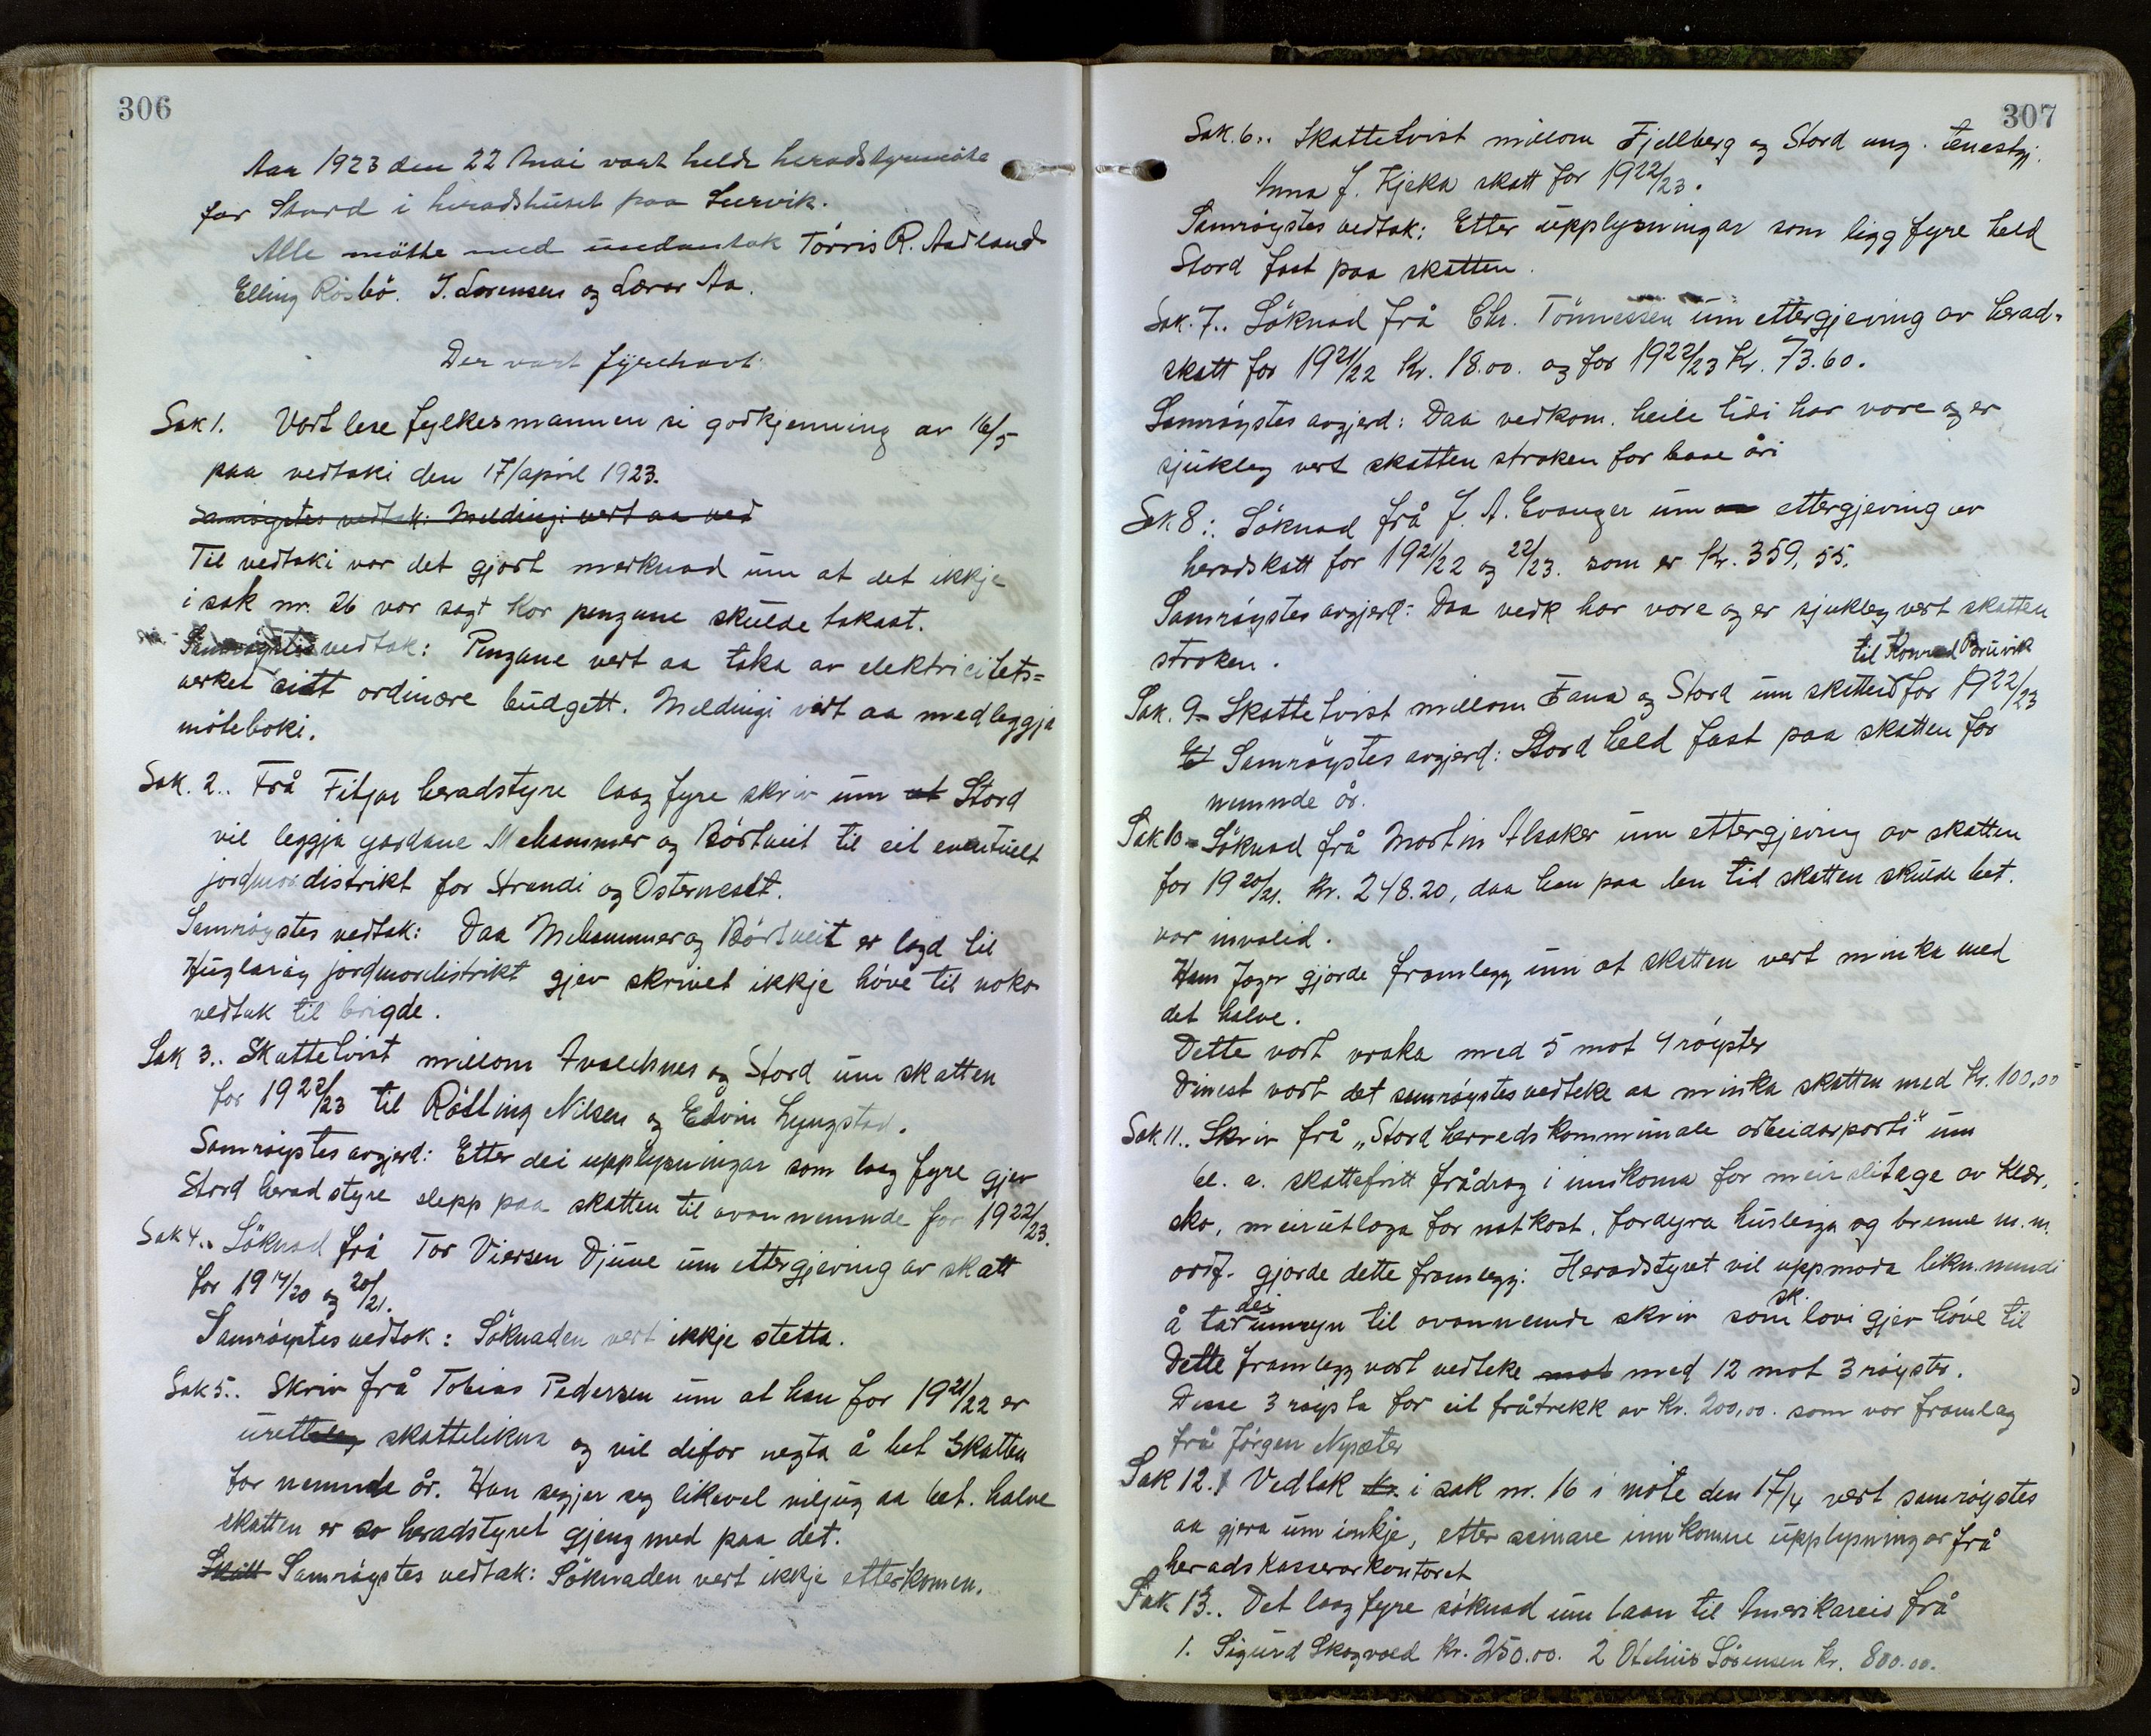 306
Aar 1923 den 22 mai vart helde heradstyremöte
for Stord i heradshuset paa Leervik.
Alle mötte med undantak Törris R. Aadland
Elling Rösbö. I. Lorensen og Lærar Aa.
Der vart fyrehavt:
Sak 1. Vart lese fylkesmannen si godkjenning av 16/5
paa vedtaki den 17/april 1923.
Samröystes vedtak: Meldingi vert aa ved
Til vedtaki var det gjort merknad um at det ikkje
i sak nr. 26 var sagt kor pengane skulde takast.
Samröystes vedtak: Pengane vert aa taka av elektricitets=
verket sitt ordinære budgett. Meldingi vert aa medleggja
möteboki.
Sak. 2.. Frå Fitjar heradstyre laag fyre skriv um at Stord
vil leggja gardane Mehammer og Börtveit til eit eventuelt
jordmordistrikt for Strandi og Osterneset.
Samröystes vedtak: Daa Mehammer og Börtveit er lagd til
Huglaröy jordmordistrikt gjev skrivet ikkje höve til noko
vedtak til brigde.
Sak 3.. Skattetvist millom Avaldsnes og Stord um skatten
for 1922/23 til Rölling Nilsen og Edvin Lyngstad.
Samröystes avgjerd: Etter dei upplysningar som laag fyre gjev
Stord heradstyre slepp paa skatten til ovannemnde for 1922/23.
Sak 4.. Söknad frå Tor Viersen Djuve um ettergjeving av skatt
for 1919/20 og 20/21.
Samröystes vedtak: Söknaden vert ikkje stetta.
Sak 5.. Skriv frå Tobias Pedersen um at han for 1921/22 er
urettsleg skattelikna og vil difor negta å bet skatten
for nemnde år. Han segjer seg likevel viljug aa bet. halve
skatten er so heradstyret gjeng med paa det.
Skatt Samröystes vedtak: Söknaden vert ikkje etterkomen.
307
Sak. 6.. Skattetvist millom Fjellberg og Stord ang. tenestgj.
Anna J. Kjeka skatt for 1922/23.
Samröystes vedtak: Etter upplysningar som ligg fyre held
Stord fast paa skatten.
Sak. 7.. Söknad frå Chr. Tönnessen um ettergjeving av herad=
skatt for 1921/22 Kr. 18.00. og for 1922/23 Kr. 73.60.
Samröystes avgjerd: Daa vedkom. heile tidi har vore og er
sjukleg vert skatten stroken for baae åri
Sak 8:. Söknad frå J. A. Evanger um ettergjeving av
heradskatt for 1921/22 og 22/23. som er Kr. 359,55.
Samröystes avgjerd: Daa vedk har vore og er sjukleg vert skatten
stroken.
til Konrad Bruvik
Sak. 9- Skattetvist millom Fana og Stord um skatten for 1922/23
Samröystes avgjerd: Stord held fast paa skatten for
nemnde år.
Sak 10- Söknad frå Martin Alsaker um ettergjeving av skatten
for 1920/21. Kr. 248.20, daa han paa den tid skatten skulde bet.
var invalid.
Hans Jager gjorde framlegg um at skatten vert minka med
det halve.
Dette vart vraka med 5 mot 4 röyster
Dinest vart det samröystes vedteke aa minka skatten med Kr. 100,00
Sak 11.. Skriv frå "Stord herreds kommunale arbeidarparti" um
bl. a. skattefritt frådrag i innkoma for meirslitage av klær,
sko, meirutlaga for matkost, fordyra husleiga og brenne m. m.
ordf. gjorde dette framlegg: Heradstyret vil uppmoda likn.nemndi
å ta dei umsyn til ovannemnde skriv som sk. lovi gjev höve til
Dette framlegg vart vedteke mot med 12 mot 3 röyster.
Desse 3 röysta for eit fråtrekk av Kr. 200,00. som var framlag
frå Jörgen Nysæter
Sak 12. Vedtak i sak nr. 16 i möte den 17/4 vert samröystes
aa gjera um inkje, etter seinare innkomne upplysningar frå
heradskasserarkontoret
Sak 13.. Det laag fyre söknad um laan til Amerikareis frå
1. Sigurd Skogvold Kr. 250.00. 2 Otelius Sörensen Kr. 800.00.